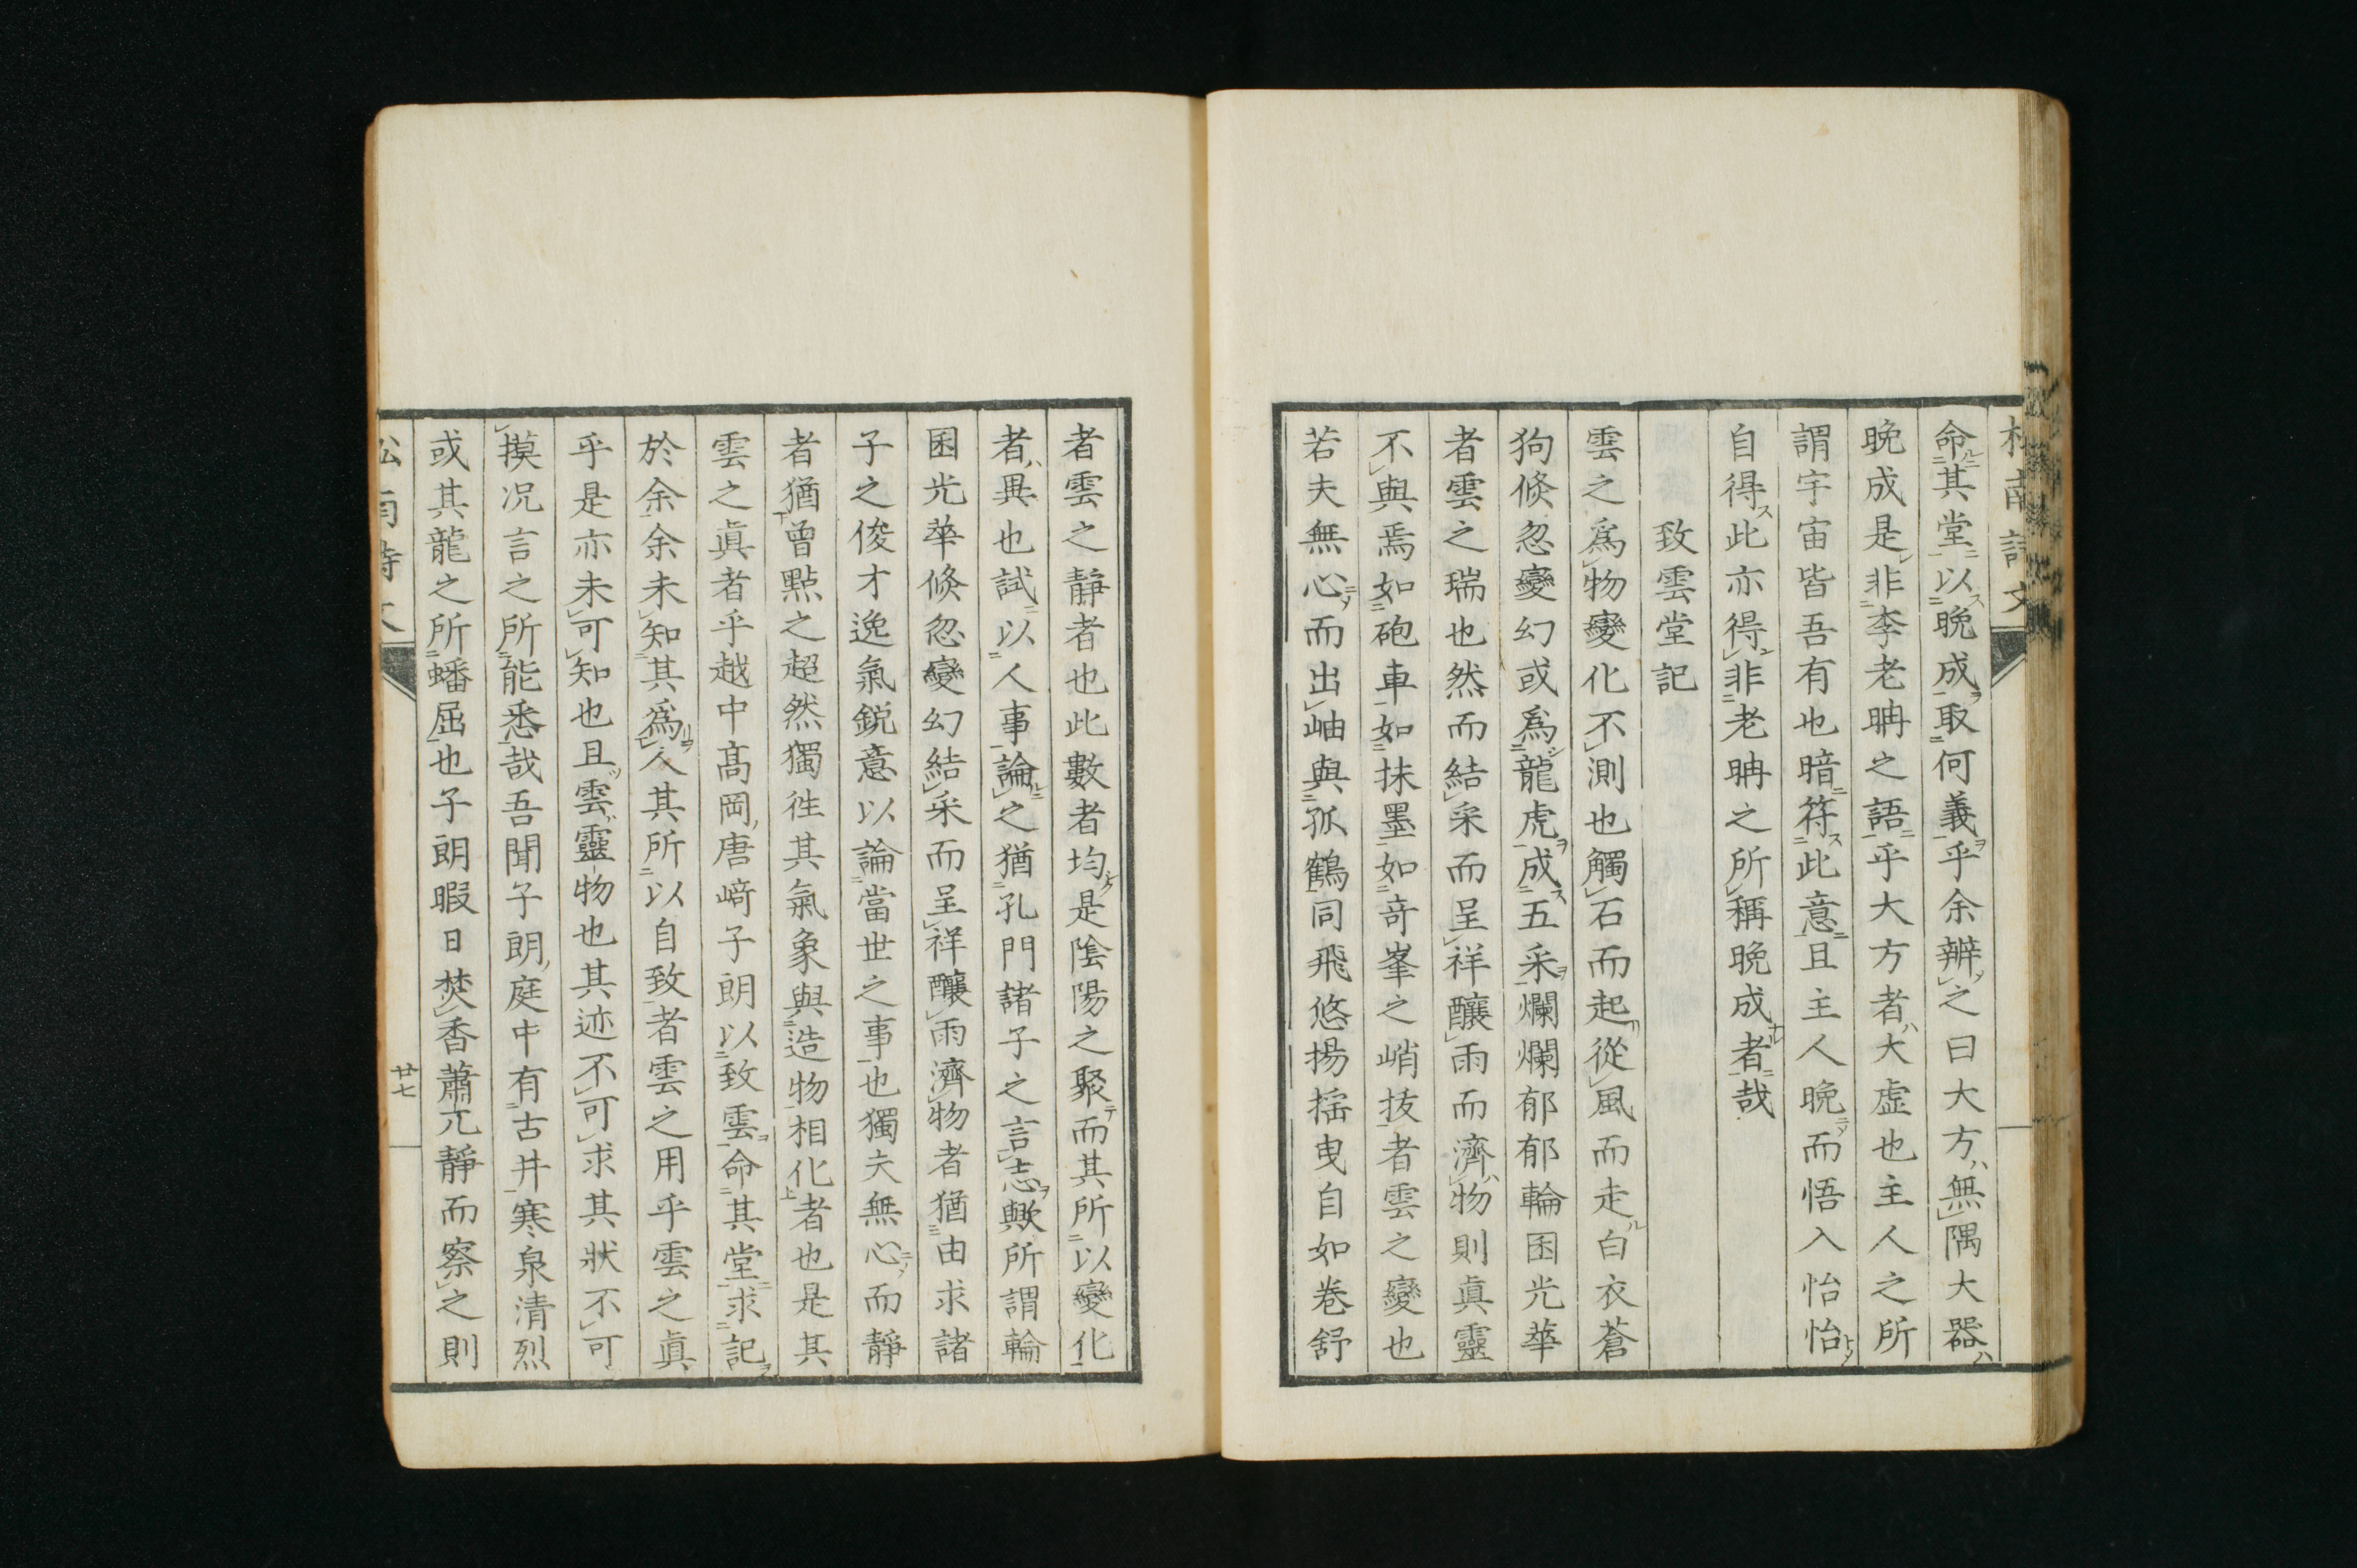 命其堂以晩成取何義乎余辨之曰大方無隅大器
晩成是非李老聃之語乎大方者大虚也主人之所
謂宇宙皆吾有也暗符此意且主人晩而悟入怡怡
自得此亦得非老聃之所稱晩成者哉
致雲堂記
雲之爲物變化不測也觸石而起從風而走白衣蒼
狗倐忽變幻或爲龍虎成五采爛爛郁郁輪囷光華
者雲之瑞也然而結采而呈祥釀雨而濟物則眞靈
不與焉如砲車如抹墨如奇峯之峭抜者雲之變也
若夫無心而出岫與孤鶴同飛悠揚揺曳自如巻舒
者雲之靜者也此數者均是陰陽之聚而其所以變化
者異也試以人事論之猶孔門諸子之言志歟所謂輪
囷光華倐忽變幻結采而呈祥釀雨濟物者猶由求諸
子之俊才逸氣鋭意以論當世之事也獨夫無心而靜
者猶曾㸃之超然獨徃其氣象與造物相化者也是其
雲之眞者乎越中髙岡唐﨑子朗以致雲命其堂求記
於余余未知其爲人其所以自致者雲之用乎雲之眞
乎是亦未可知也且雲靈物也其迹不可求其狀不可
摸况言之所能悉哉吾聞子朗庭中有古井寒泉清烈
或其龍之所蟠屈也子朗暇日焚香蕭兀靜而察之則
松南詩文
廿七